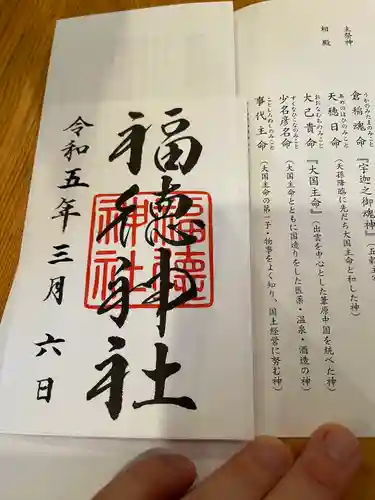 主祭神
相殿
倉稲魂命
うかのみたまのみこと
『宇迦之御魂神』
天穂日命
あめのほひのみこと
(天孫降臨に先だち大国主命と和した神)
大己貴命
おおなむちのみこと
『大国主命』
(出雲を中心とした葦原中国を統べた神)
少名彦名命
すくなひこなのみこと
(大国主命とともに国造りをした医薬・温泉・酒造の神)
事代主命
ことしろぬしのみこと
(大国主命の第一子・物事をよく知り、国土経営に努む神)
福徳神社
福徳神社
令和五年三月六日